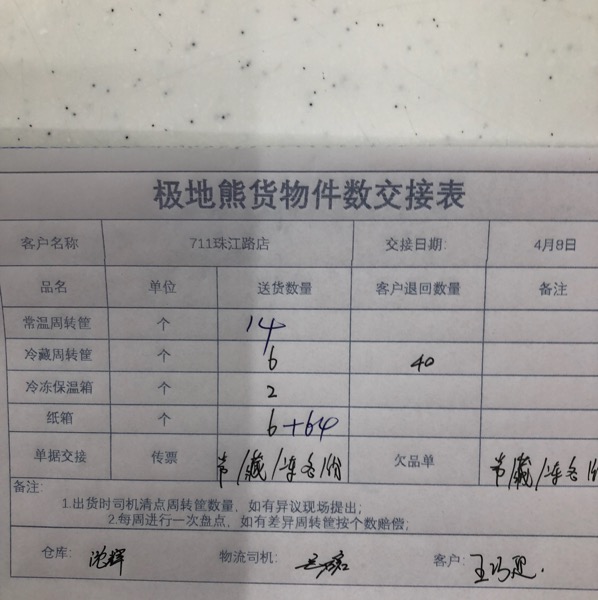 极地熊货物件数交接表
客户名称 711珠江路店 交接日期: 4月9日
品名 单位 送货数量 客户退回数量 备注
常温周转筐 个 14
冷藏周转筐 个 6 40
冷冻保温箱 个 2
纸箱 个 6+64
单据交接 传票 常/藏/冻各1份 欠品单 常/藏/冻各1份
备注:
1.出货时司机清点周转筐数量，如有异议现场提出;
2.每周进行一次盘点，如有差异周转筐按个数赔偿;
仓库: 沈辉 物流司机: 客户: 王巧